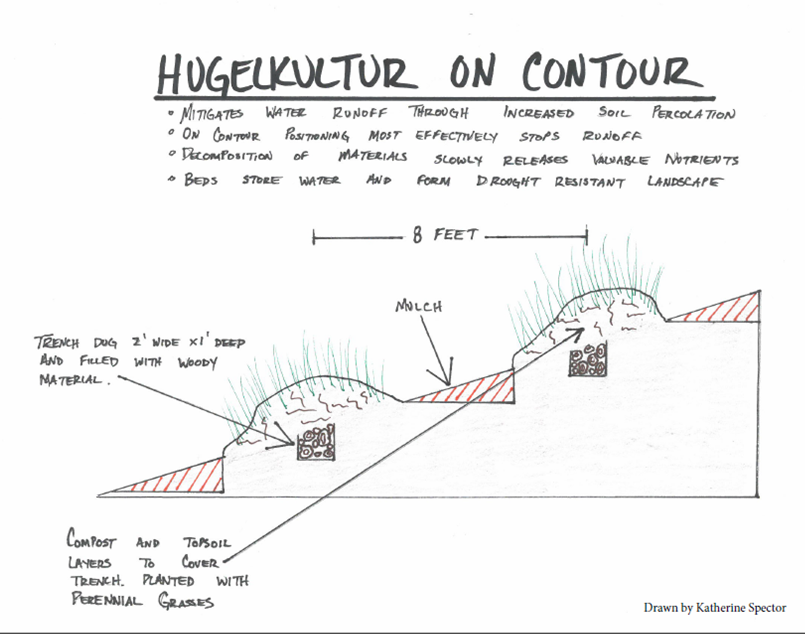 HUGELKULTUR ON CONTOUR
• MITIGATES WATER RUNOFF THROUGH INCREASED SOIL PERCOLATION
• ON CONTOUR POSITIONING MOST EFFECTIVELY STOPS RUNOFF
• DECOMPOSITION OF MATERIALS SLOWLY RELEASES VALUABLE NUTRIENTS
• BEDS STORE WATER AND FORM DROUGHT RESISTANT LANDSCAPE
8 FEET
MULCH
TRENCH DUG 2' WIDE X1' DEEP
AND FILLED WITH WOODY
MATERIAL.
COMPOST AND TOPSOIL
LAYERS TO COVER
TRENCH. PLANTED WITH
PERENNIAL GRASSES
Drawn by Katherine Spector